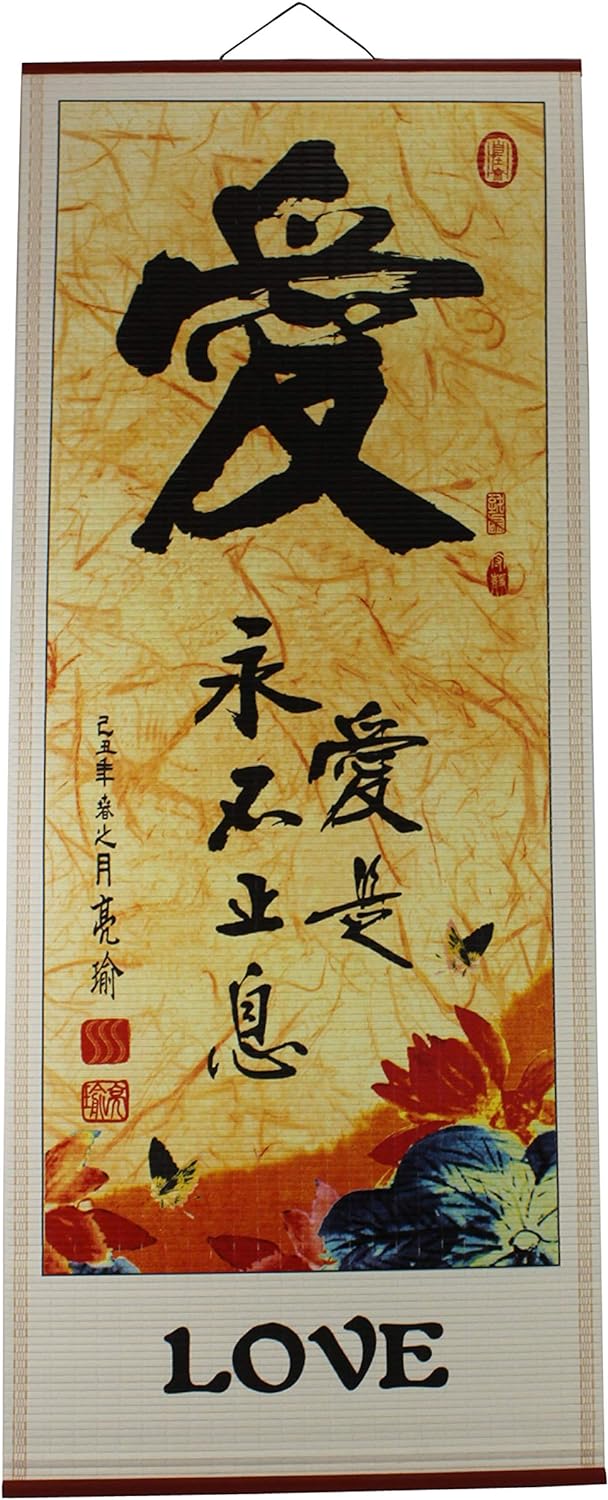 愛
愛是
永不止息
己丑年春之月亮瑜
亮瑜
LOVE